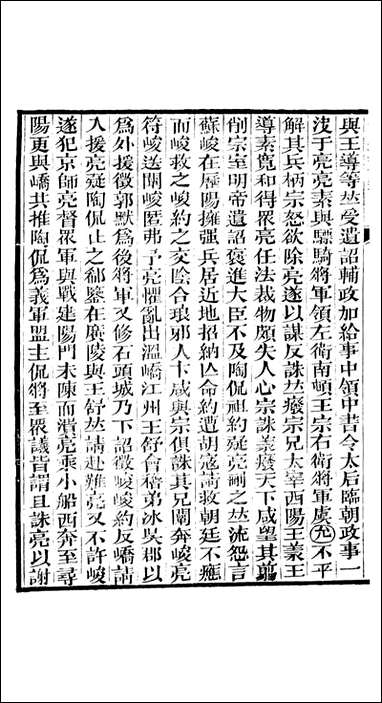 與王導等並受遺詔輔政加給事中領中書令太后臨朝政事一
決于亮亮素與驃騎將軍領左衛南頓王宗右衛將軍虞允不平
解其兵柄宗怒欲除亮遂以謀反誅並癈宗兄太宰西陽王羕王
導素寬和得眾亮任法裁物頗失人心宗誅羕癈天下咸望其翦
削宗室明帝遺詔褒進大臣不及陶侃祖約疑亮刪之並流怨言
蘇峻在歷陽擁强兵居近地招納亾命約遣胡寇請救朝廷不應
而峻救之峻約之交陰合琅邪人卞咸與宗俱誅其兄闡奔峻亮
符峻送闡峻匿弗予亮懼亂出溫嶠江州王舒會稽弟冰吳郡以
爲外援徵郭默爲後將軍又修石頭城乃下詔徵峻峻約反嶠請
入援亮疑陶侃止之郗鑒在廣陵與王舒並請赴難亮又不許峻
遂犯京師亮督眾軍與戰建陽門未陳而潰亮乘小船西奔至尋
陽更與嶠共推陶侃爲義軍盟主侃將至眾議皆謂且誅亮以謝